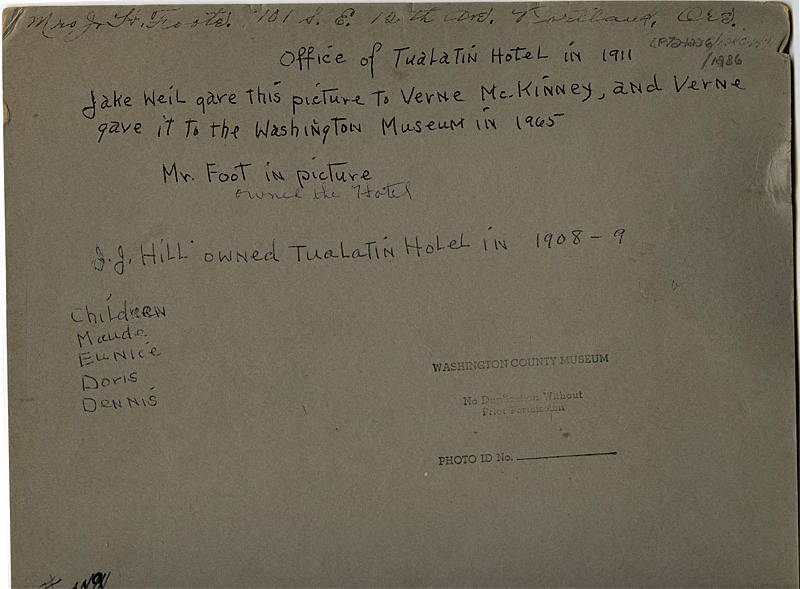 Mrs J. W. Foote. 701 S. E. 12th Ave. Portland, Ore.
Office of Tualatin Hotel in 1911
/1986
Jake Weil gave this picture to Verne Mc.Kinney, and Verne
gave it to the Washington Museum in 1965
Mr. Foot in picture
owned the Hotel
J.J. Hill owned Tualatin Hotel in 1908-9
Children
Maude
Eunice
Doris
Dennis
WASHINGTON COUNTY MUSEUM
No Duplication Without
Prior Permission
PHOTO ID No.